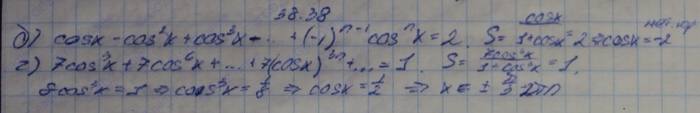 38.38
б) cosx - cos²x + cos³x - ... + (-1)ⁿ⁻¹cosⁿx = 2. S = cosx/(1+cosx) = 2 cosx = -2
г) 7cos³x + 7cos⁶x + ... + 7(cosx)³ⁿ + ... = 1. S = 7cos³x/(1-cos³x) = 1.
8cos³x = 1 ⇒ cos³x = 1/8 ⇒ cosx = 1/2 ⇒ x = ± π/3 2πn